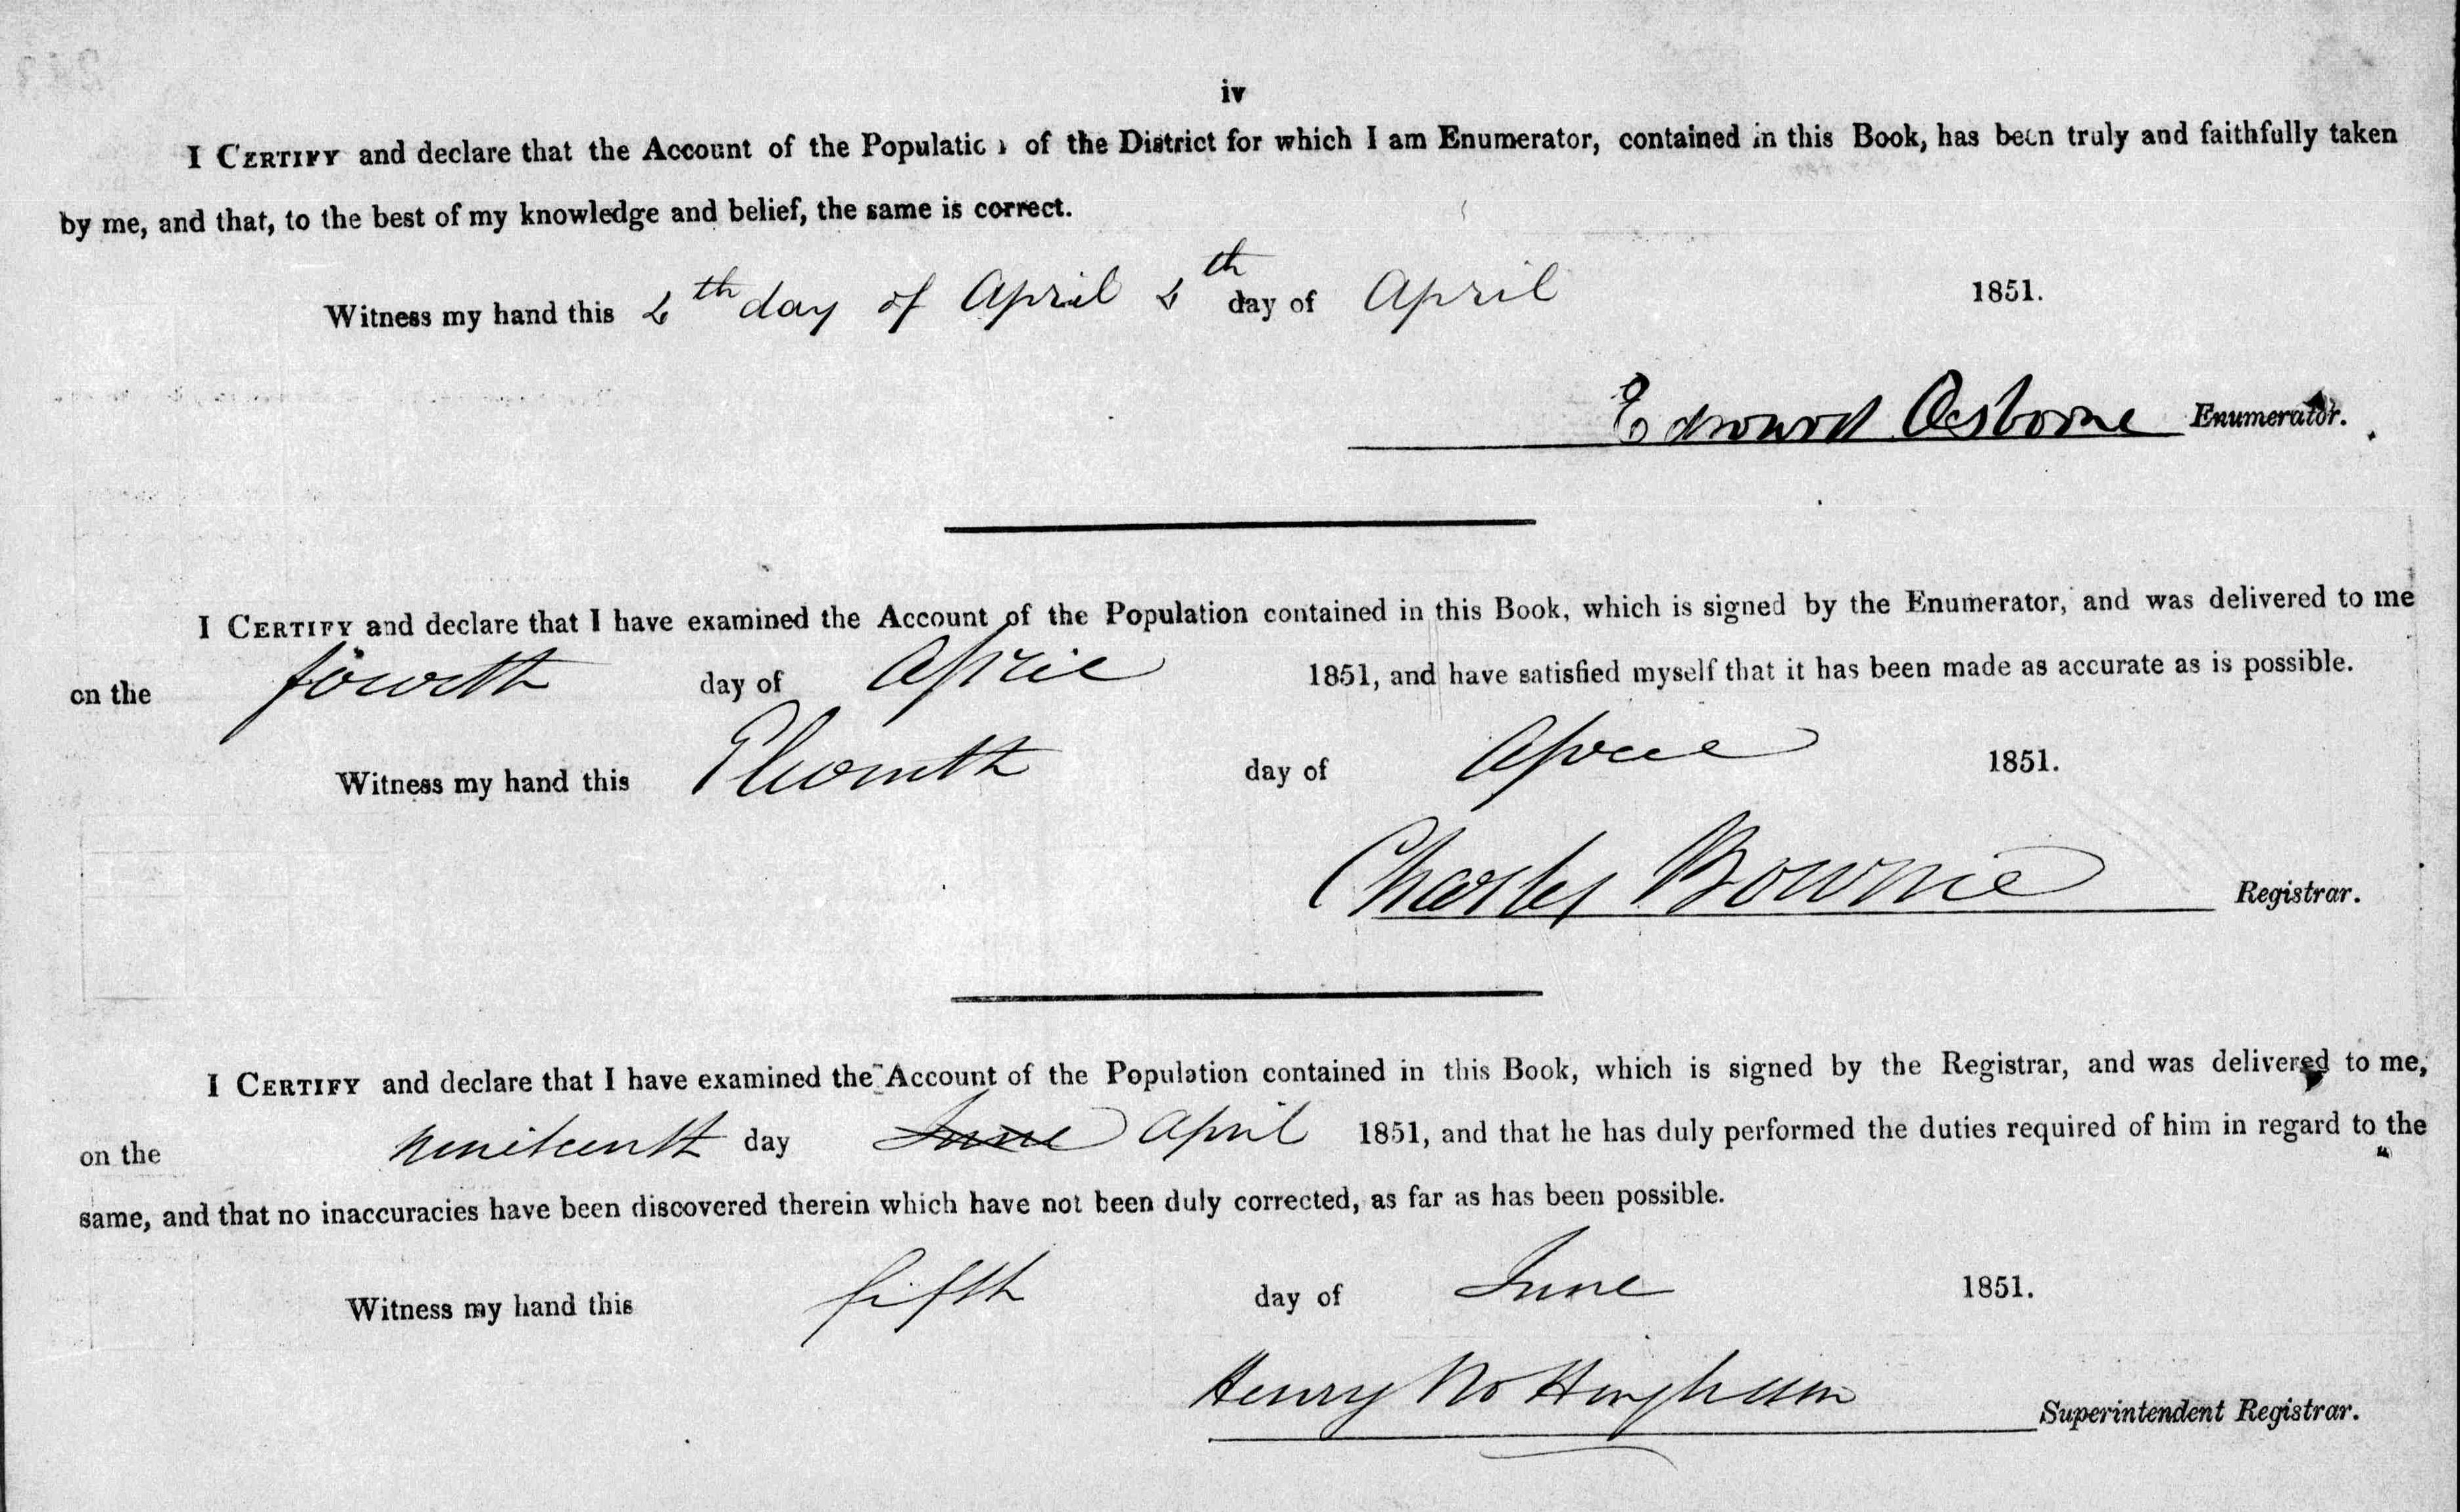 iv
I CERTIFY and declare that the Account of the Populatio of the District for which I am Enumerator, contained in this Book, has been truly and faithfully taken
by me, and that, to the best of my knowledge and belief, the same is correct.
Witness my hand this 4th day of April 4th day of April 1851.
Edward Osborne Enumerator.
I CERTIFY and declare that I have examined the Account of the Population contained in this Book, which is signed by the Enumerator, and was delivered to me
on the fourth day of April 1851, and have satisfied myself that it has been made as accurate as is possible.
Witness my hand this Eleventh day of April 1851.
Charles Bowne Registrar.
I CERTIFY and declare that I have examined the Account of the Population contained in this Book, which is signed by the Registrar, and was delivered to me,
on the nineteenth day June April 1851, and that he has duly performed the duties required of him in regard to the
same, and that no inaccuracies have been discovered therein which have not been duly corrected, as far as has been possible.
Witness my hand this fifth day of June 1851.
Henry Nottingham Superintendent Registrar.